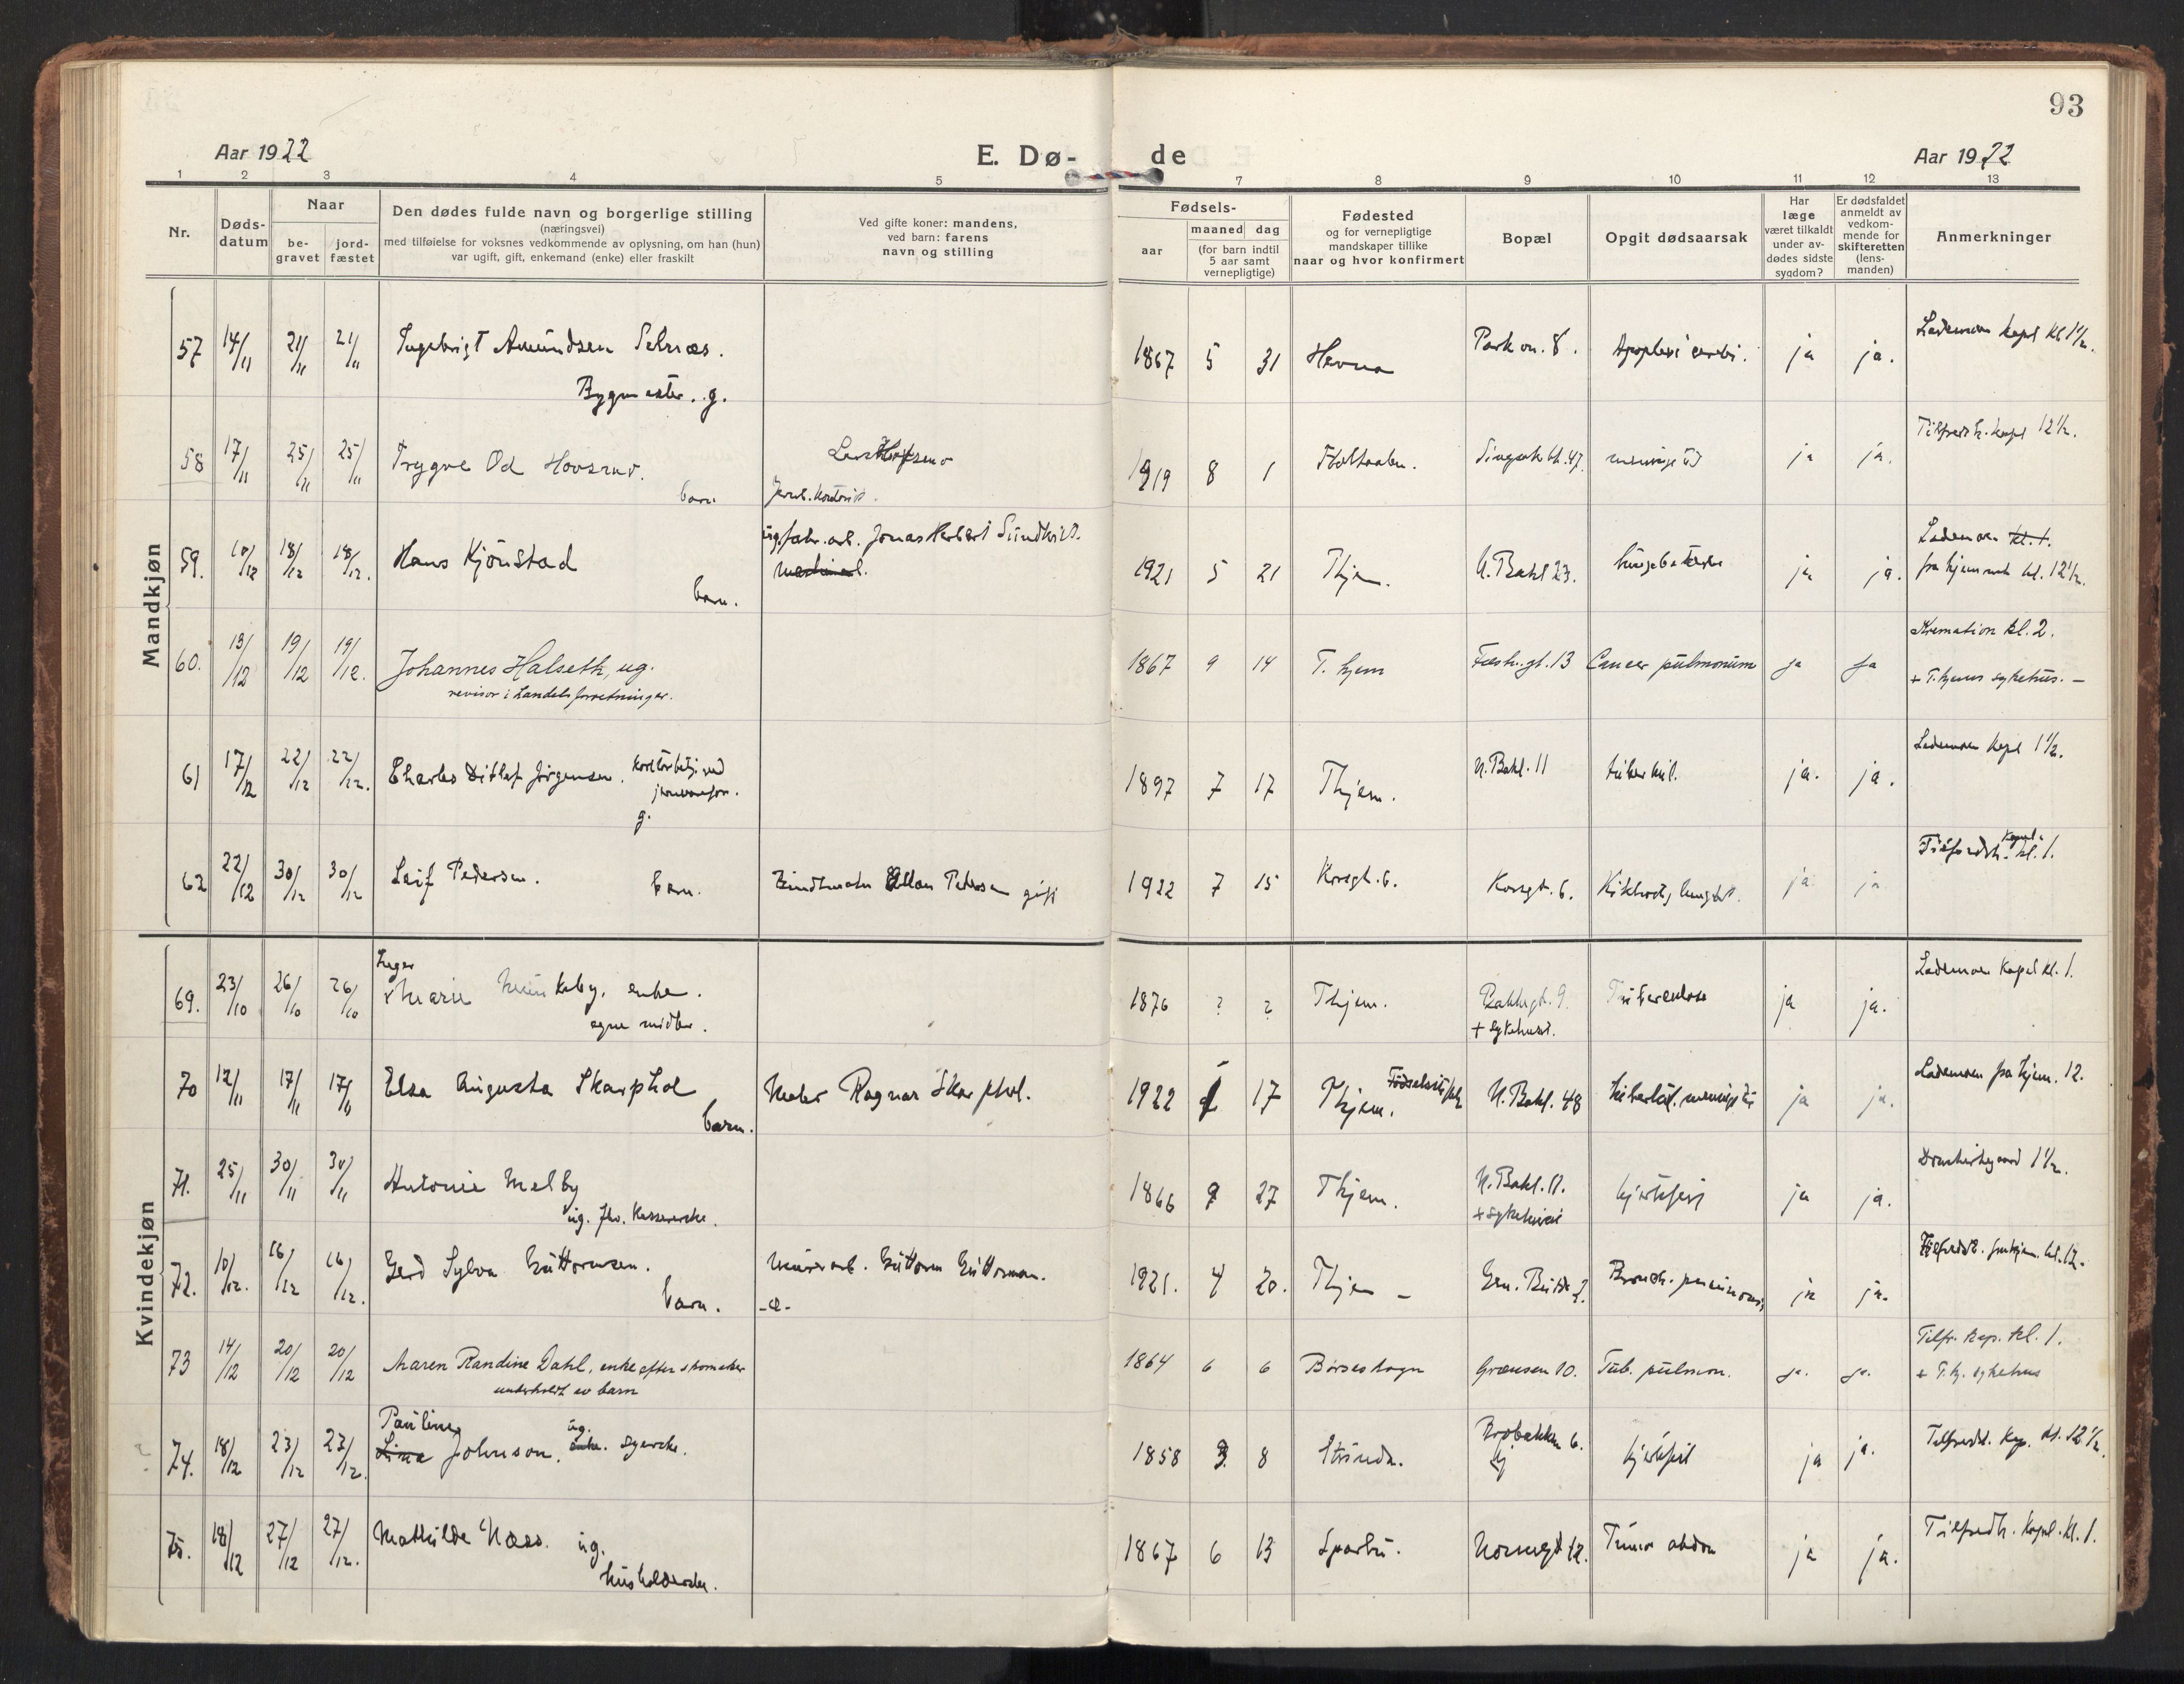 93
Aar 1922
E. Dø-
de
Aar 1922
1 2 3 4 5 7 8 9 10 11 12 13
Nr.
Døds-
datum
Naar
be-
gravet
jord-
fæstet
Den dødes fulde navn og borgerlige stilling
(næringsvei)
med tilføielse for voksnes vedkommende av oplysning, om han (hun)
var ugift, gift, enkemand (enke) eller fraskilt
Ved gifte koner: mandens,
ved barn: farens
navn og stilling
Fødsels-
aar
maaned dag
(for barn indtil
5 aar samt
vernepligtige)
Fødested
og for vernepligtige
mandskaper tillike
naar og hvor konfirmert
Bopæl
Opgit dødsaarsak
Har
læge
været tilkaldt
under av-
dødes sidste
sygdom?
Er dødsfaldet
anmeldt av
vedkom-
mende for
skifteretten
(lens-
manden)
Anmerkninger
Mandkjøn
57 14/11 21/11 21/11 Ingebrigt Amundsen Selnæs.
Bygmester. g.
1867 5 31 Hevne Apoplexi cerebri. ja ja. Lademoen kapel kl 1 1/2.
58 17/11 25/11 25/11 Trygve Od
barn
1919 8 1 Holtaalen. ja ja. Tilfredsh. kapel 12 1/2.
59. 10/12 18/12 18/12. Hans Kjönstad
barn.
ug. fabr. arb. Jonas Herbert
1921 5 21 Thjem. N. Bakl 23. ja ja. Lademoen kl. 1.
fra hjemmet kl. 12 1/2.
60. 13/12 19/12 19/12. Johannes Halseth, ug.
revisor i handelsforretninger.
1867 9 14 T. hjem 13 Cancer pulmonum ja ja Kremation kl. 2.
+ T.hjems sykehus. –
61 17/12 22/12 22/12. Charles Ditlef Jörgensen.
g.
1897 7 17 Thjem. N. Bakl. 11 tuberkul. ja. ja. Lademoen kapel 1 1/2.
62 22/12 30/12 30/12 Leif Pedersen. barn. Pedersen gift
1922 7 15 Korsgt. 6. Korsgt. 6. Kikhoste, ja ja Tilfredsh. kapel. kl. 1.
Kvindekjøn
69. 23/10 26/10 26/10 Inger
Marie Munkeby, enke.
egne midler.
1876 ? ? Thjem. Bakkegt. 9.
+ Sykehuset.
Tuberculose ja ja. Lademoen Kapel kl. 1.
70 12/11 17/11 17/11 Elsa Augusta Skarphol
barn.
Maler Ragnar Skarphol.
1922 1 17 Thjem. Födselsstift N. Bakl. 48 tuberkul. ja ja. Lademoen fra hjem. 12.
71. 25/11 30/11 30/11 Antonie Melby
ug. fhv.
1866 9 27 Thjem. N. Bakl. 11.
+ Sykehuset
hjertefeil ja ja. Domkirkegaard 1 1/2.
72. 10/12. 16/12 16/12. Gerd Sylva Guttormsen.
barn.
Murerarb. Guttorm Guttormsen.
1921. 4 20. Thjem – Bronch. pneumoni, ja ja. Tilfredsh. fra hjem. kl. 12.
73 14/12 20/12 20/12 Maren Randine Dahl, enke efter skomaker
underholdt av barn
1864 6 6 Børseskogn Grænsen 10. Tub. pulmon. ja. ja. Tilfr. kap. kl. 1.
+ T.hj. sykehus
74. 18/12 23/12 23/12. Pauline
Lina Johnson. ug. enke. Syerske.
1858 3 8 Strinda. Brobakken 6. hjertefeil ja ja. Tilfredsh. Kap. kl. 12 1/2.
75. 18/12 27/12 27/12. Mathilde Næss. ug.
husholderske.
1867 6 13 Sparbu. Tumor abdom ja ja. Tilfredsh. Kapel. kl. 1.